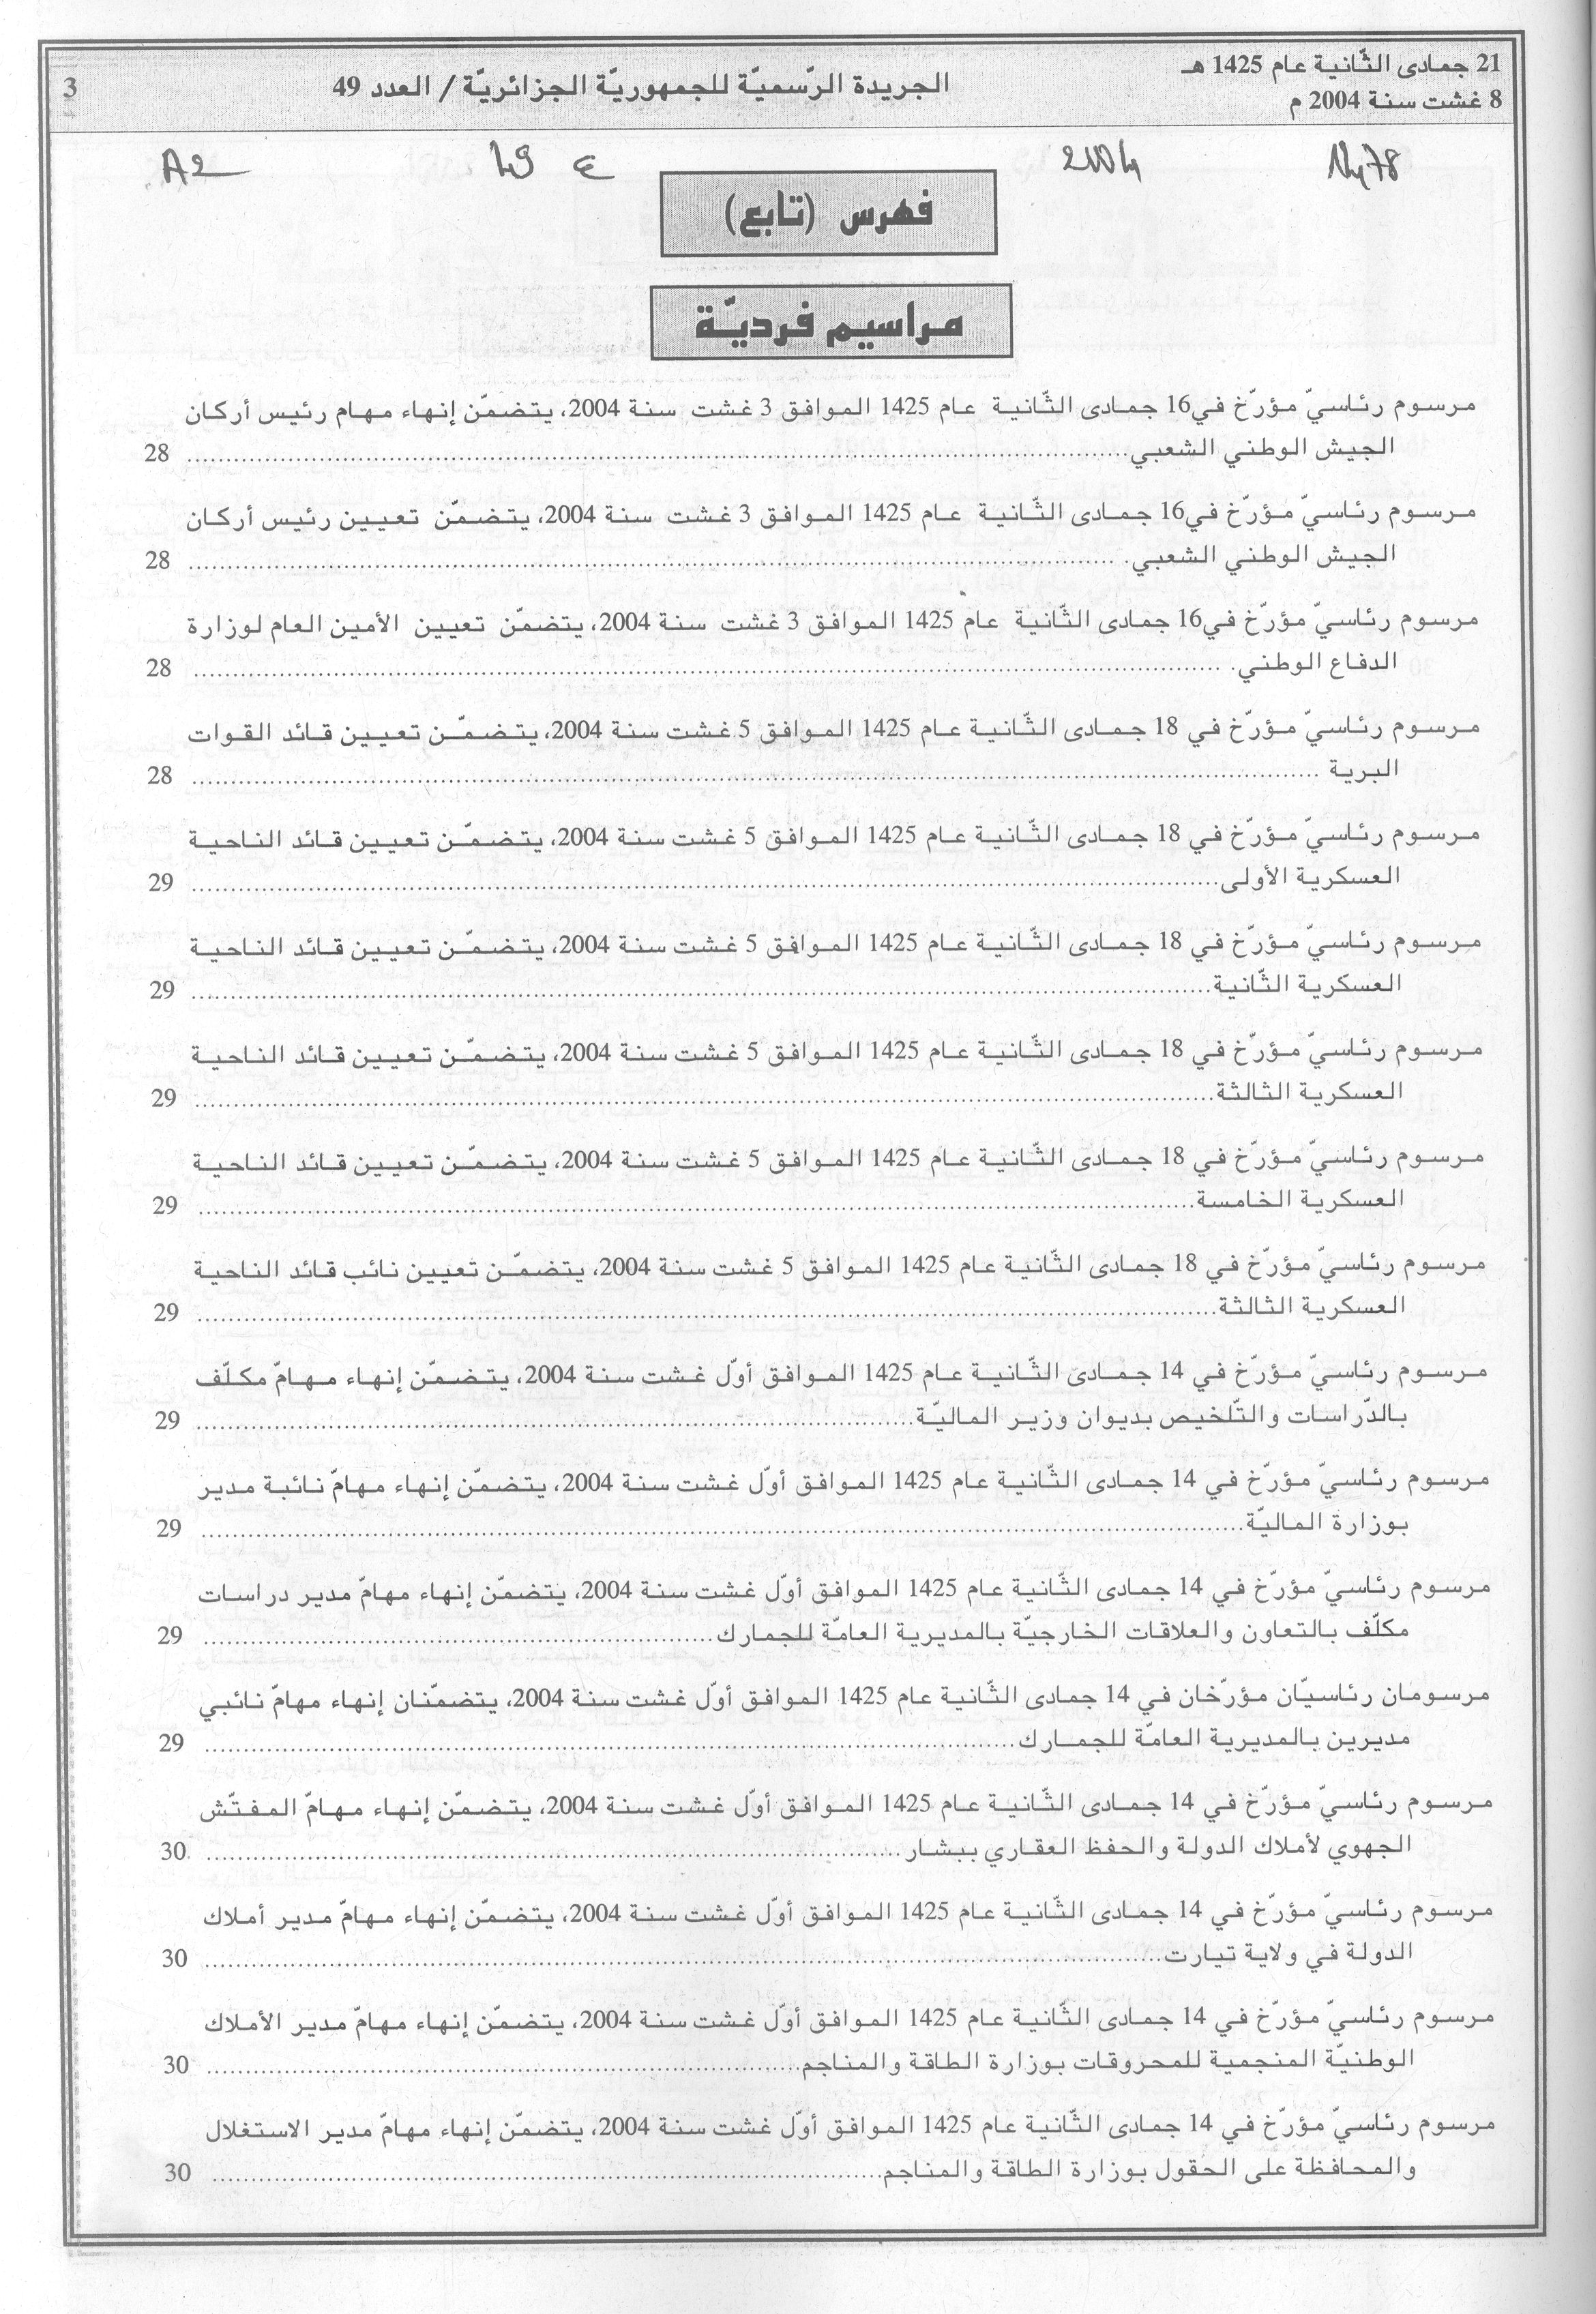 21 جمادى الثّانية عام 1425 هـ
8 غشت سنة 2004 م
الجريدة الرّسميّة للجمهوريّة الجزائريّة / العدد 49
3
A2 49 ع 2004
فهرس (تابع)
مراسيم فرديّة
مرسوم رئاسيّ مؤرّخ في16 جمادى الثّانية عام 1425 الموافق 3 غشت سنة 2004، يتضمّن إنهاء مهام رئيس أركان
الجيش الوطني الشعبي.......... 28
مرسوم رئاسيّ مؤرّخ في16 جمادى الثّانية عام 1425 الموافق 3 غشت سنة 2004، يتضمّن تعيين رئيس أركان
الجيش الوطني الشعبي. .......... 28
مرسوم رئاسيّ مؤرّخ في16 جمادى الثّانية عام 1425 الموافق 3 غشت سنة 2004، يتضمّن تعيين الأمين العام لوزارة
الدفاع الوطني. .......... 28
مرسوم رئاسيّ مؤرّخ في 18 جمادى الثّانية عام 1425 الموافق 5 غشت سنة 2004، يتضمّن تعيين قائد القوات
البرية .......... 28
مرسوم رئاسيّ مؤرّخ في 18 جمادى الثّانية عام 1425 الموافق 5 غشت سنة 2004، يتضمّن تعيين قائد الناحية
العسكرية الأولى.......... 29
مرسوم رئاسيّ مؤرّخ في 18 جمادى الثّانية عام 1425 الموافق 5 غشت سنة 2004، يتضمّن تعيين قائد الناحية
العسكرية الثّانية.......... 29
مرسوم رئاسيّ مؤرّخ في 18 جمادى الثّانية عام 1425 الموافق 5 غشت سنة 2004، يتضمّن تعيين قائد الناحية
العسكرية الثالثة.......... 29
مرسوم رئاسيّ مؤرّخ في 18 جمادى الثّانية عام 1425 الموافق 5 غشت سنة 2004، يتضمّن تعيين قائد الناحية
العسكرية الخامسة.......... 29
مرسوم رئاسيّ مؤرّخ في 18 جمادى الثّانية عام 1425 الموافق 5 غشت سنة 2004، يتضمّن تعيين نائب قائد الناحية
العسكرية الثالثة.......... 29
مرسوم رئاسيّ مؤرّخ في 14 جمادى الثّانية عام 1425 الموافق أوّل غشت سنة 2004، يتضمّن إنهاء مهامّ مكلّف
بالدّراسات والتّلخيص بديوان وزير الماليّة.......... 29
مرسوم رئاسيّ مؤرّخ في 14 جمادى الثّانية عام 1425 الموافق أوّل غشت سنة 2004، يتضمّن إنهاء مهامّ نائبة مدير
بوزارة الماليّة.......... 29
مرسوم رئاسيّ مؤرّخ في 14 جمادى الثّانية عام 1425 الموافق أوّل غشت سنة 2004، يتضمّن إنهاء مهامّ مدير دراسات
مكلّف بالتعاون والعلاقات الخارجيّة بالمديرية العامّة للجمارك.......... 29
مرسومان رئاسيّان مؤرّخان في 14 جمادى الثّانية عام 1425 الموافق أوّل غشت سنة 2004، يتضمّنان إنهاء مهامّ نائبي
مديرين بالمديرية العامّة للجمارك.......... 29
مرسوم رئاسيّ مؤرّخ في 14 جمادى الثّانية عام 1425 الموافق أوّل غشت سنة 2004، يتضمّن إنهاء مهامّ المفتّش
الجهوي لأملاك الدولة والحفظ العقاري ببشار.......... 30
مرسوم رئاسيّ مؤرّخ في 14 جمادى الثّانية عام 1425 الموافق أوّل غشت سنة 2004، يتضمّن إنهاء مهامّ مدير أملاك
الدولة في ولاية تيارت.......... 30
مرسوم رئاسيّ مؤرّخ في 14 جمادى الثّانية عام 1425 الموافق أوّل غشت سنة 2004، يتضمّن إنهاء مهامّ مدير الأملاك
الوطنيّة المنجمية للمحروقات بوزارة الطاقة والمناجم.......... 30
مرسوم رئاسيّ مؤرّخ في 14 جمادى الثّانية عام 1425 الموافق أوّل غشت سنة 2004، يتضمّن إنهاء مهامّ مدير الاستغلال
والمحافظة على الحقول بوزارة الطاقة والمناجم.......... 30